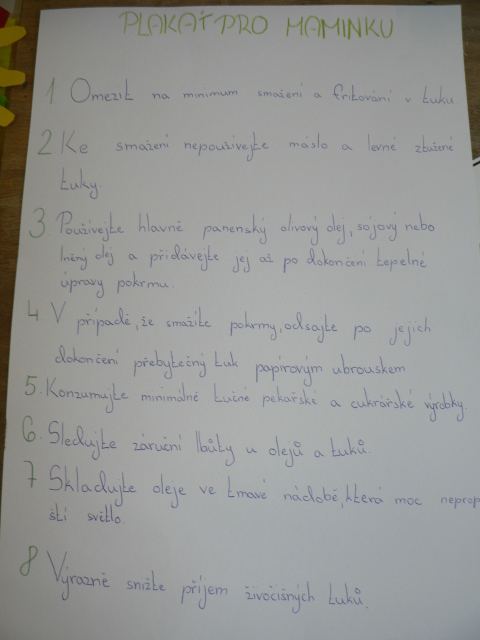 PLAKÁT PRO MAMINKU
1 Omezit na minimum smažení a fritování v tuku
2 Ke smažení nepoužívejte máslo a levné ztužené
tuky.
3 Používejte hlavně panenský olivový olej, sojový nebo
lněný olej a přidávejte jej až po dokončení tepelné
úpravy pokrmu.
4 V případě, že smažíte pokrmy, odsajte po jejich
dokončení přebytečný tuk papírovým ubrouskem
5. Konzumujte minimálně tučné pekařské a cukrářské výrobky.
6. Sledujte záruční lhůty u olejů a tuků.
7 Skladujte oleje ve tmavé nádobě, která moc neprop
ští světlo.
8 Výrazně snižte příjem živočišných tuků.